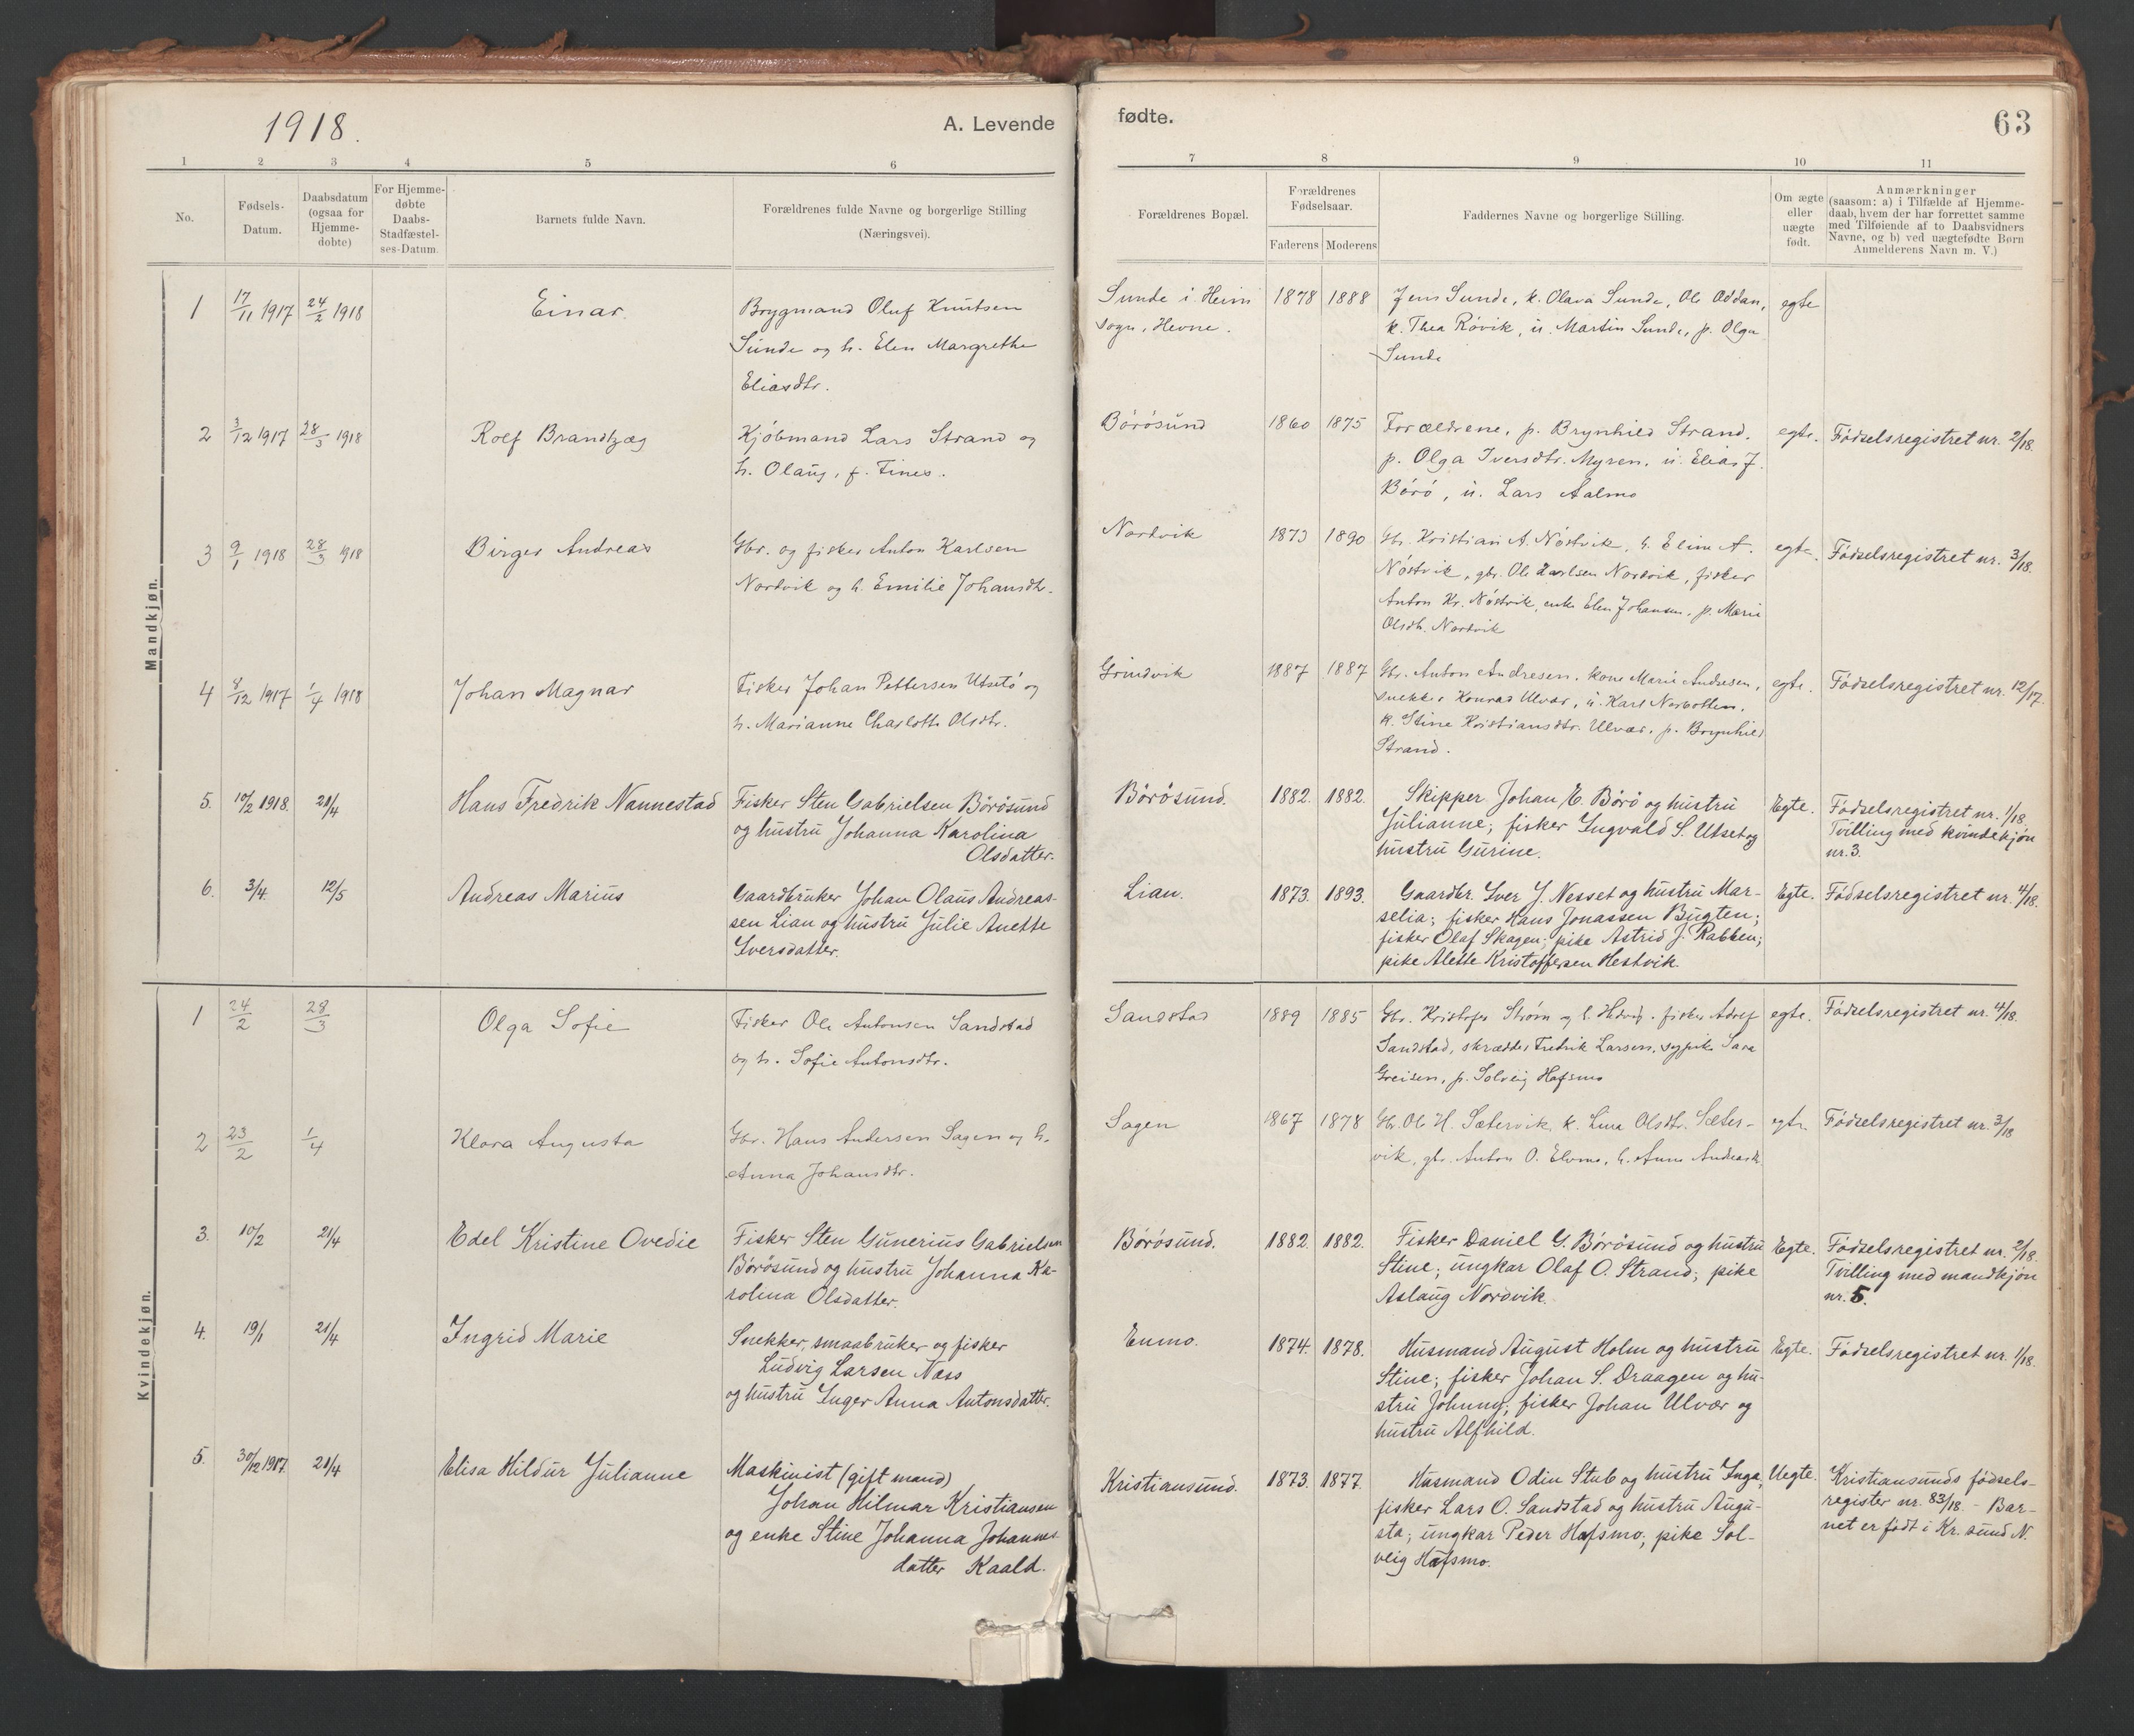 1918.
A. Levende
fødte.
63
1 2 3 4 5 6
7 8 9 10 11
No.
Fødsels-
Datum.
Daabsdatum
(ogsaa for
Hjemme-
døbte)
For Hjemme-
døbte
Daabs-
Stadfæstel-
ses-Datum.
Barnets fulde Navn.
Forældrenes fulde Navne og borgerlige Stilling
(Næringsvei).
Forældrenes Bopæl.
Forældrenes
Fødselsaar.
Faderens Moderens
Faddernes Navne og borgerlige Stilling.
Om ægte
eller
uægte
født.
Anmærkninger
(saasom: a) i Tilfælde af Hjemme-
daab, hvem der har forrettet samme
med Tilføiende af to Daabsvidners
Navne, og b) ved uægtefødte Børn
Anmelderens Navn m. V.)
Mandkjøn.
1 17/11 1917 24/2 1918
Einar.
Brygmand Oluf Knutsen
Sunde og h. Elen Margrethe
Eliasdtr.
Sunde i Heim
sogn, Hevne.
1878 1888
Jens Sunde, k. Olava Sunde, Ole Oddan,
k. Thea Rövik, u. Martin Sunde, p. Olga
Sunde
egte
2 3/12 1917 28/3 1918
Rolf Brandtzæg
Kjöbmand Lars Strand og
h. Olaug, f. Fines.
Börösund
1860 1875
Forældrene, p. Brynhild Strand.
p. Olga Iversdtr. Myren, u. Elias J.
Börö, u. Lars Aalmo
egte.
Födselsregistret nr. 2/18.
3 9/1 1918 28/3 1918
Birger Andreas
Gbr. og fisker Anton Karlsen
Nordvik og h. Emilie Johansdtr.
Nordvik
1873 1890
Gbr. Kristian A. Nöstvik, h. Elim A.
Nöstvik, gbr. Ole Karlsen Nordvik, fisker
Anton Kr. Nöstvik, enke Elen Johansen, p. Marie
Olsdtr. Nordvik
egte.
Födselsregistret nr. 3/18.
4 8/12 1917 1/4 1918
Johan Magnar
Fisker Johan Pettersen Utsetö og
h. Marianne Charlotte Olsdtr.
Grindvik
1887 1887
Gbr. Anton Andresen, kone Marie Andresen,
snekker Konrad Ulvær, u. Karl
k. Stine Kristiansdtr. Ulvær, p. Brynhild
Strand.
egte.
Födselsregistret nr. 12/17.
5. 10/2 1918. 21/4
Hans Fredrik Nannestad
Fisker Sten Gabrielsen Börösund
og hustru Johanna Karolina
Olsdatter.
Börösund.
1882. 1882.
Skipper Johan E. Börö og hustru
Julianne; fisker Ingvald S. Utset og
hustru Gurine.
Egte.
Födselsregistret nr. 1/18.
Tvilling med kvindekjön
nr. 3.
6. 3/4. 12/5
Andreas Marius
Gaardbruker Johan Olaus Andreas-
sen Lian og hustru Julie Anette
Iversdatter.
Lian.
1873. 1893.
Gaardbr. Iver J. Nesset og hustru Mar-
selia; fisker Hans Jonassen Bugten;
fisker Olaf Skagen; pike Astrid J. Rabben;
pike Alette Kristoffersen Hestvik.
Egte.
Födselsregistret nr. 4/18.
Kvindekjøn.
1 24/2 28/3
Olga Sofie
Fisker Ole Antonsen Sandstad
og h. Sofie Antonsdtr.
Sandstad
1889 1885
Gbr. Kristofer Ström og h. Hedvig, fisker Adolf
Sandstad, skrædder Fredrik Larsen, sypike Sara
Greisen, p. Solveig Hafsmo
egte.
Födselsregistret nr. 4/18.
2 23/2 1/4
Klara Augusta
Gbr. Hans Andersen Sagen og h.
Anna Johansdtr.
Sagen
1867 1878
Gbr. Ole H. Sætervik, k. Lina Olsdtr. Sæter-
vik, gbr. Anton O. Elvmo, h. Anne Andreasdtr.
egte.
Födselsregistret nr. 3/18
3. 10/2 21/4
Edel Kristine Ovedie
Fisker Sten Gunerius Gabrielsen
Börösund og hustru Johanna Ka-
rolina Olsdatter.
Börösund.
1882. 1882.
Fisker Daniel G. Börösund og hustru
Stine; ungkar Olaf O. Strand; pike
Aslaug Nordvik.
Egte.
Födselsregistret nr. 2/18.
Tvilling med mandkjön
nr. 5.
4. 19/1 21/4
Ingrid Marie
Snekker, smaabruker og fisker
Ludvig Larsen Næss
og hustru Inger Anna Antonsdatter.
Enmo.
1874. 1878.
Husmand August Holm og hustru
Stine; fisker Johan S. Draagen og hu-
stru Johnny; fisker Johan Ulvær og
hustru Alfhild.
Egte.
Födselsregistret nr. 1/18.
5. 30/12 1917. 21/4
Elisa Hildur Julianne
Maskinist (gift mand)
Johan Hilmar Kristiansen
og enke Stine Johanna Johannes-
datter Kaald.
Kristiansund.
1873. 1877.
Husmand Odin Stub og hustru Inga;
fisker Lars O. Sandstad og hustru Augu-
sta; ungkar Peder Hafsmo; pike Sol-
veig Hafsmo.
Uegte.
Kristiansunds födsels-
register nr. 83/18. - Bar-
net er födt i Kr.sund N.